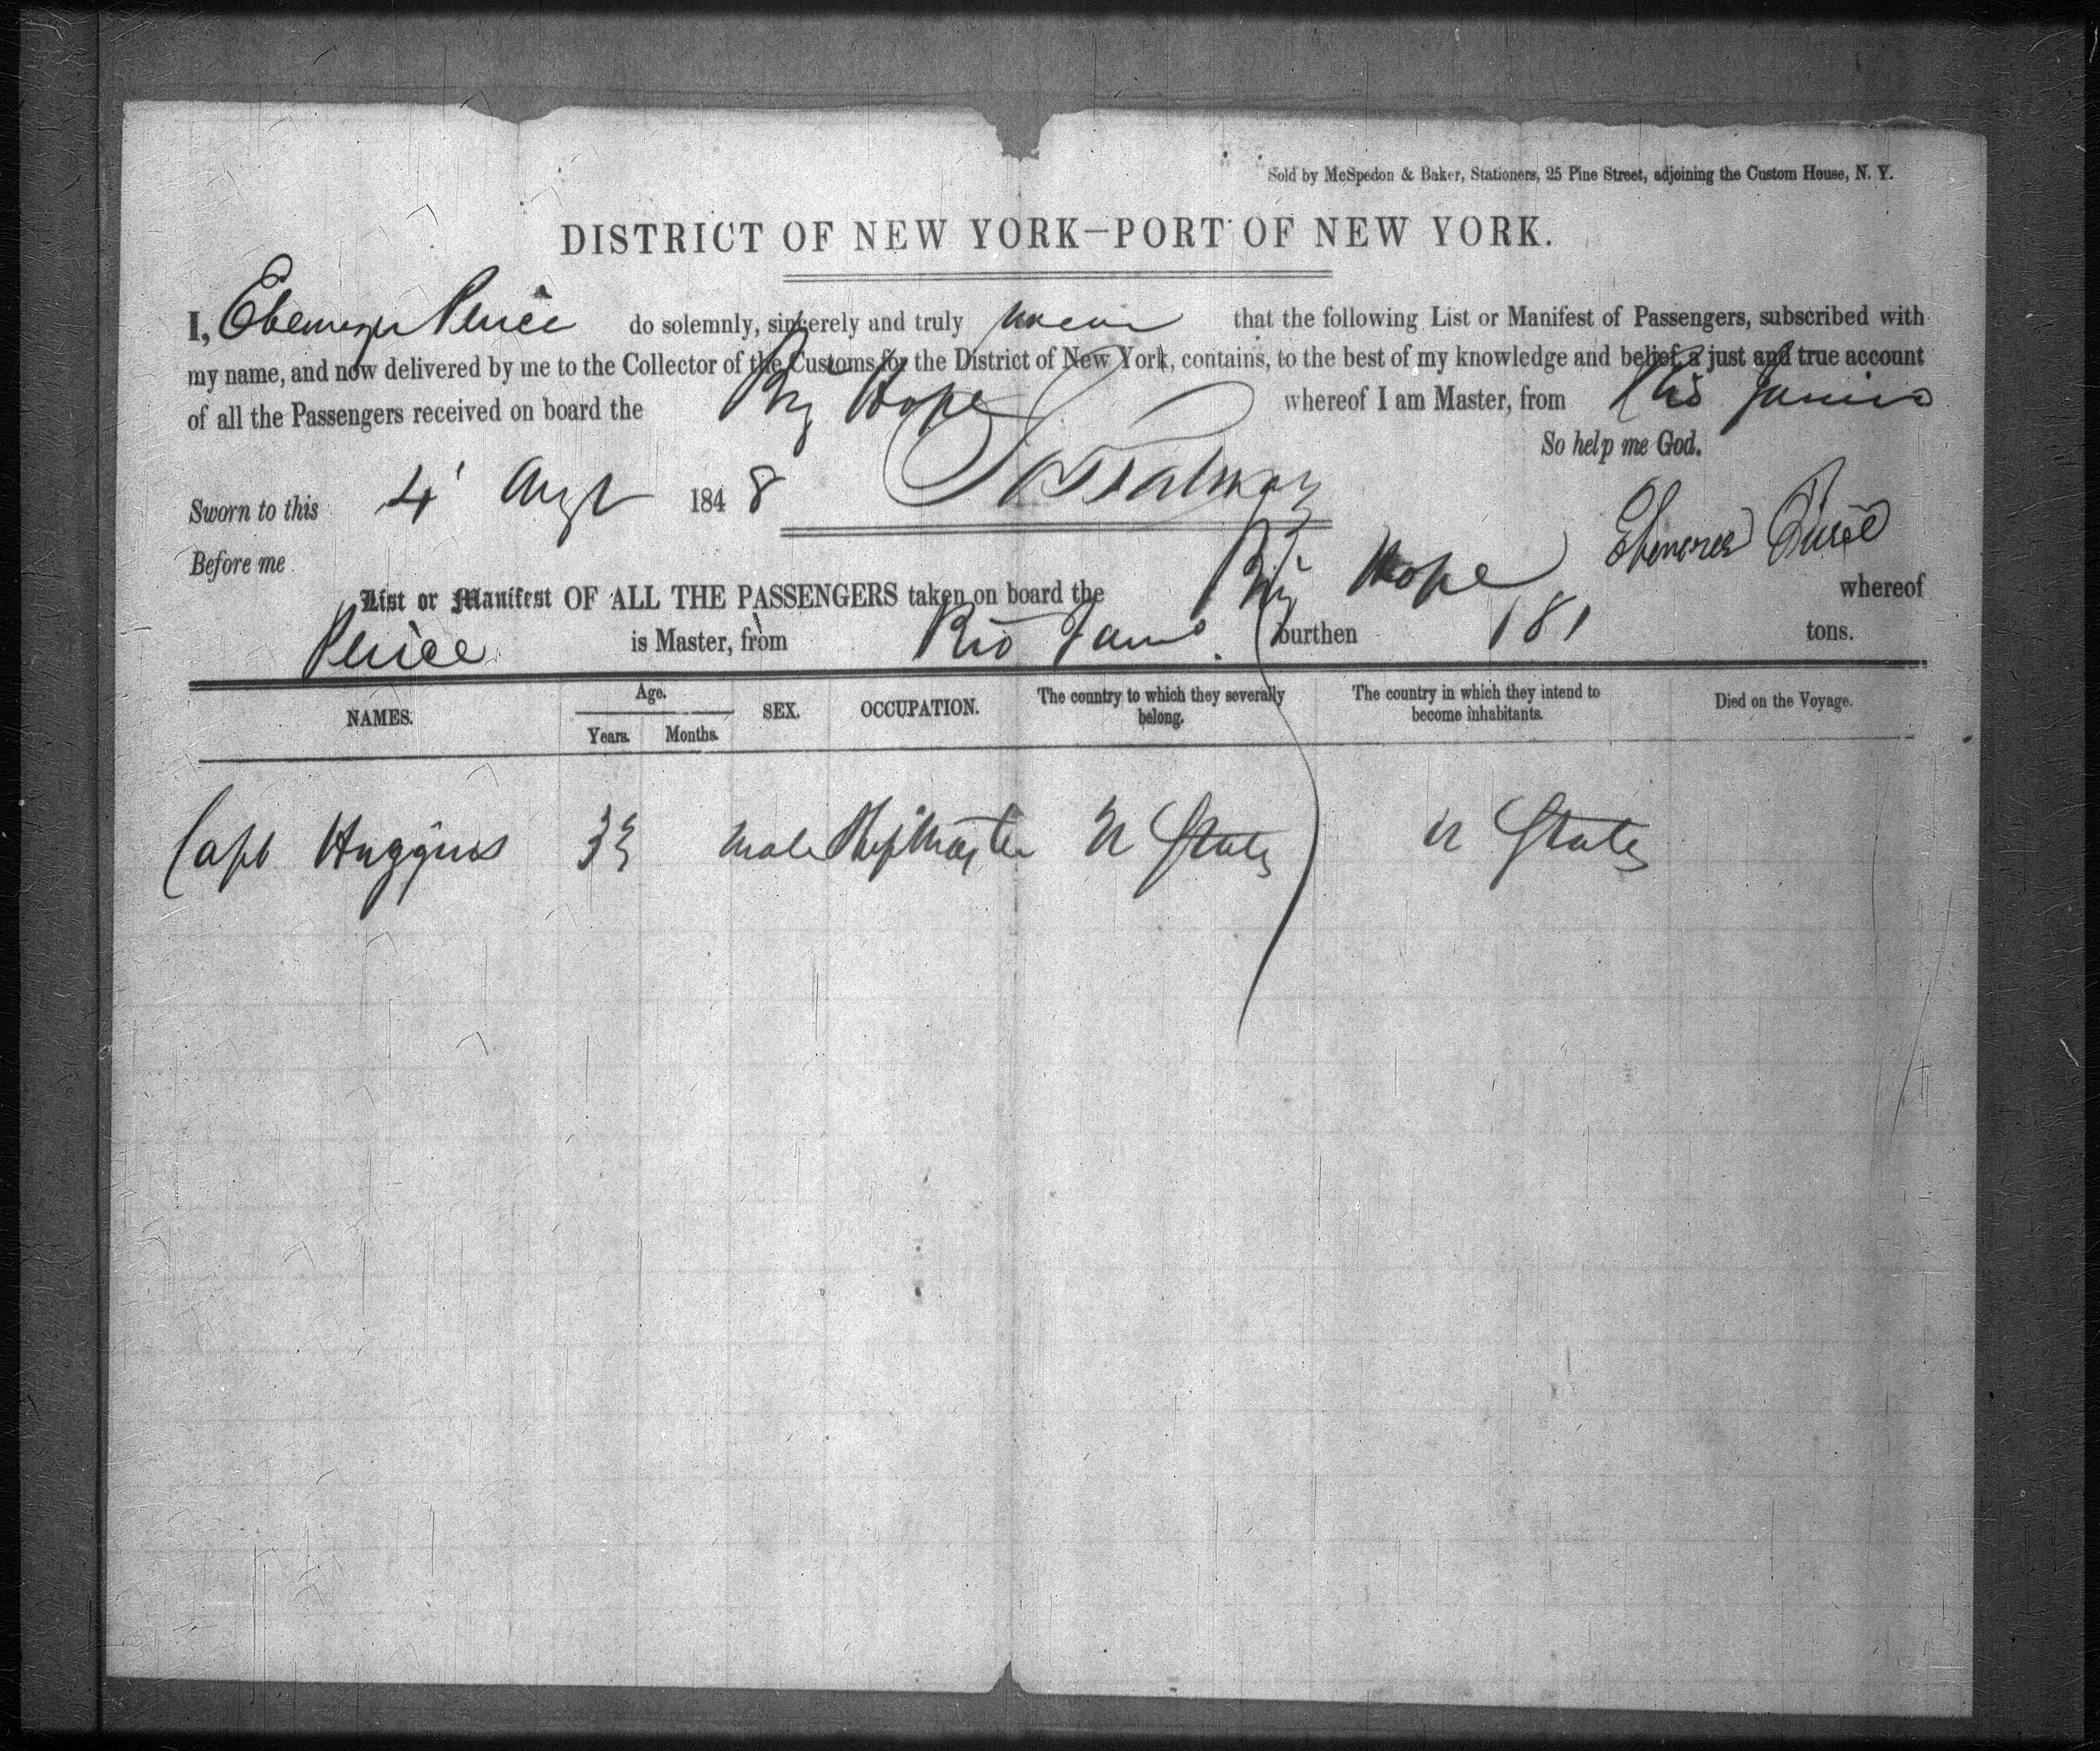 Sold by McSpedon & Baker, Stationers, 25 Pine Street, adjoining the Custom House, N. Y.
DISTRICT OF NEW YORK—PORT OF NEW YORK.
I, Ebenezer do solemnly, sincerely and truly swear that the following List or Manifest of Passengers, subscribed with
my name, and now delivered by me to the Collector of the Customs for the District of New York, contains, to the best of my knowledge and belief, a just and true account
of all the Passengers received on board the Brig Hope whereof I am Master, from Rio Janiro
So help me God.
Sworn to this 4 Augt 1848
Ebenezer
Before me
List or Manifest OF ALL THE PASSENGERS taken on board the Brig Hope whereof
is Master, from Rio Jano. burthen 181 tons.
NAMES. Age. SEX. OCCUPATION. The country to which they severally belong. The country in which they intend to become inhabitants. Died on the Voyage.
Years. Months.
Capt Huggins 33 male Ship Master U States U States